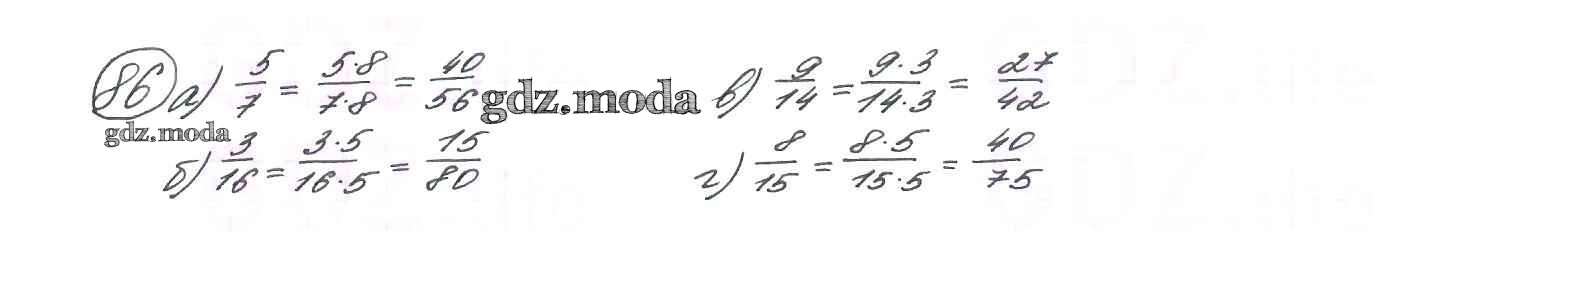 86 а) 5/7 = 5·8/7·8 = 40/56 gdz.moda в) 9/14 = 9·3/14·3 = 27/42
gdz.moda
б) 3/16 = 3·5/16·5 = 15/80 г) 8/15 = 8·5/15·5 = 40/75